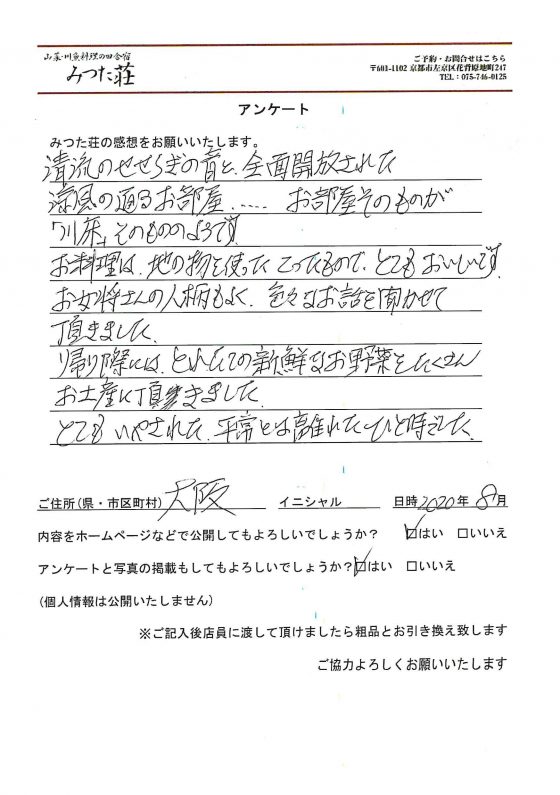 山菜・川魚料理の田舎宿
みつた荘
ご予約・お問合せはこちら
〒601-1102 京都市左京区花背原地町247
TEL：075-746-0125
アンケート
みつた荘の感想をお願いいたします。
清流のせせらぎの音と、全面開放された
涼風の通るお部屋…… お部屋そのものが
「川床」そのもののようです。
お料理は、地の物を使った こったもので、とても おいしいです。
お女将さんの人柄もよく、色々なお話を聞かせて
頂きました。
帰り際には、とれたての新鮮なお野菜をたくさん
お土産に頂きました。
とても いやされた、平常とは離れたひと時でした。
ご住所(県・市区町村) 大阪 イニシャル 日時 2020年 8月
内容をホームページなどで公開してもよろしいでしょうか？ ☑はい □いいえ
アンケートと写真の掲載もしてもよろしいでしょうか？ ☑はい □いいえ
(個人情報は公開いたしません)
※ご記入後店員に渡して頂けましたら粗品とお引き換え致します
ご協力よろしくお願いいたします